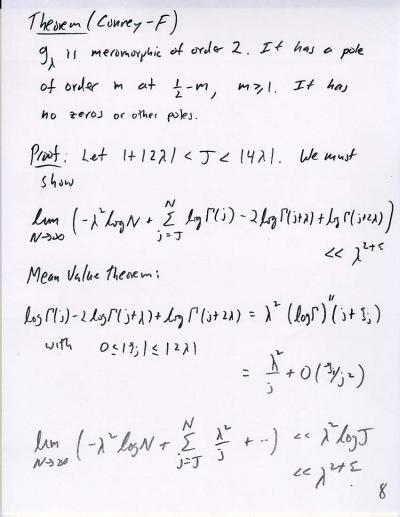 Theorem (Conrey-F)
g_λ is meromorphic of order 2. It has a pole
of order m at 1/2 - m, m ≥ 1. It has
no zeros or other poles.
Proof: Let 1+|2λ| < J < |4λ|. We must
show
lim_{N→∞} (-λ² log N + Σ_{j=J}^{N} log Γ(j) - 2 log Γ(j+λ) + log Γ(j+2λ))
<< λ^{2+ε}
Mean Value theorem:
log Γ(j) - 2 log Γ(j+λ) + log Γ(j+2λ) = λ² (log Γ)''(j+ξ_j)
with 0 ≤ |ξ_j| ≤ |2λ|
= λ²/j + O(
lim_{N→∞} (-λ² log N + Σ_{j=J}^{N} λ²/j + ··) << λ² log J
<< λ^{2+ε}.
8